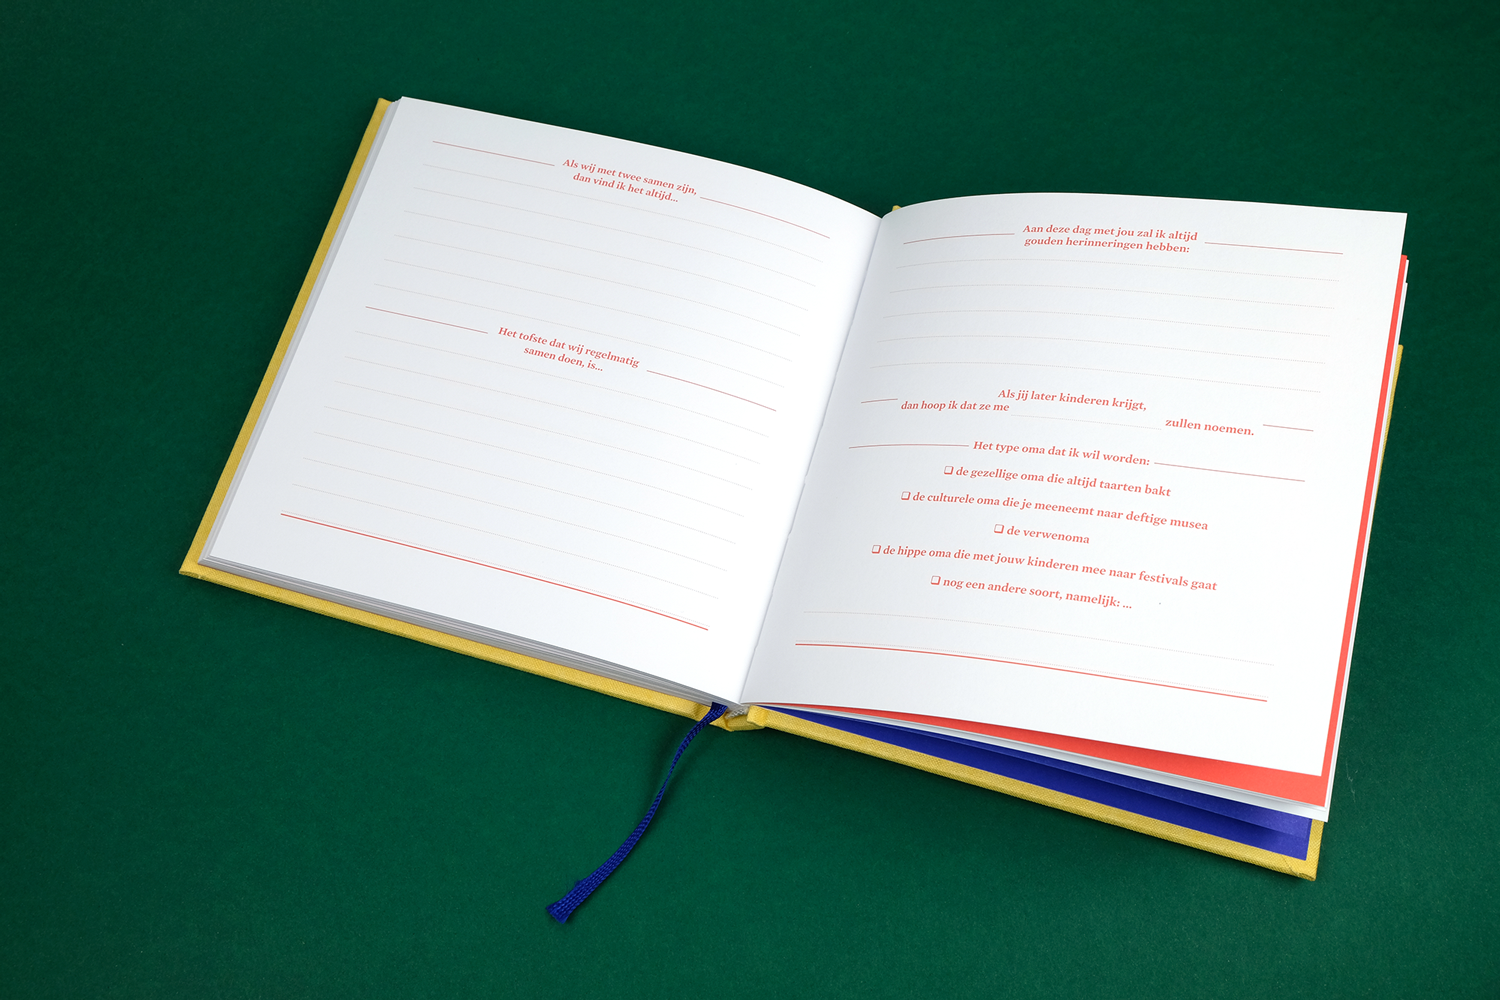 Als wij met twee samen zijn,
dan vind ik het altijd...
Het tofste dat wij regelmatig
samen doen, is...
Aan deze dag met jou zal ik altijd
gouden herinneringen hebben:
Als jij later kinderen krijgt,
dan hoop ik dat ze me zullen noemen.
Het type oma dat ik wil worden:
❏ de gezellige oma die altijd taarten bakt
❏ de culturele oma die je meeneemt naar deftige musea
❏ de verwenoma
❏ de hippe oma die met jouw kinderen mee naar festivals gaat
❏ nog een andere soort, namelijk: ...